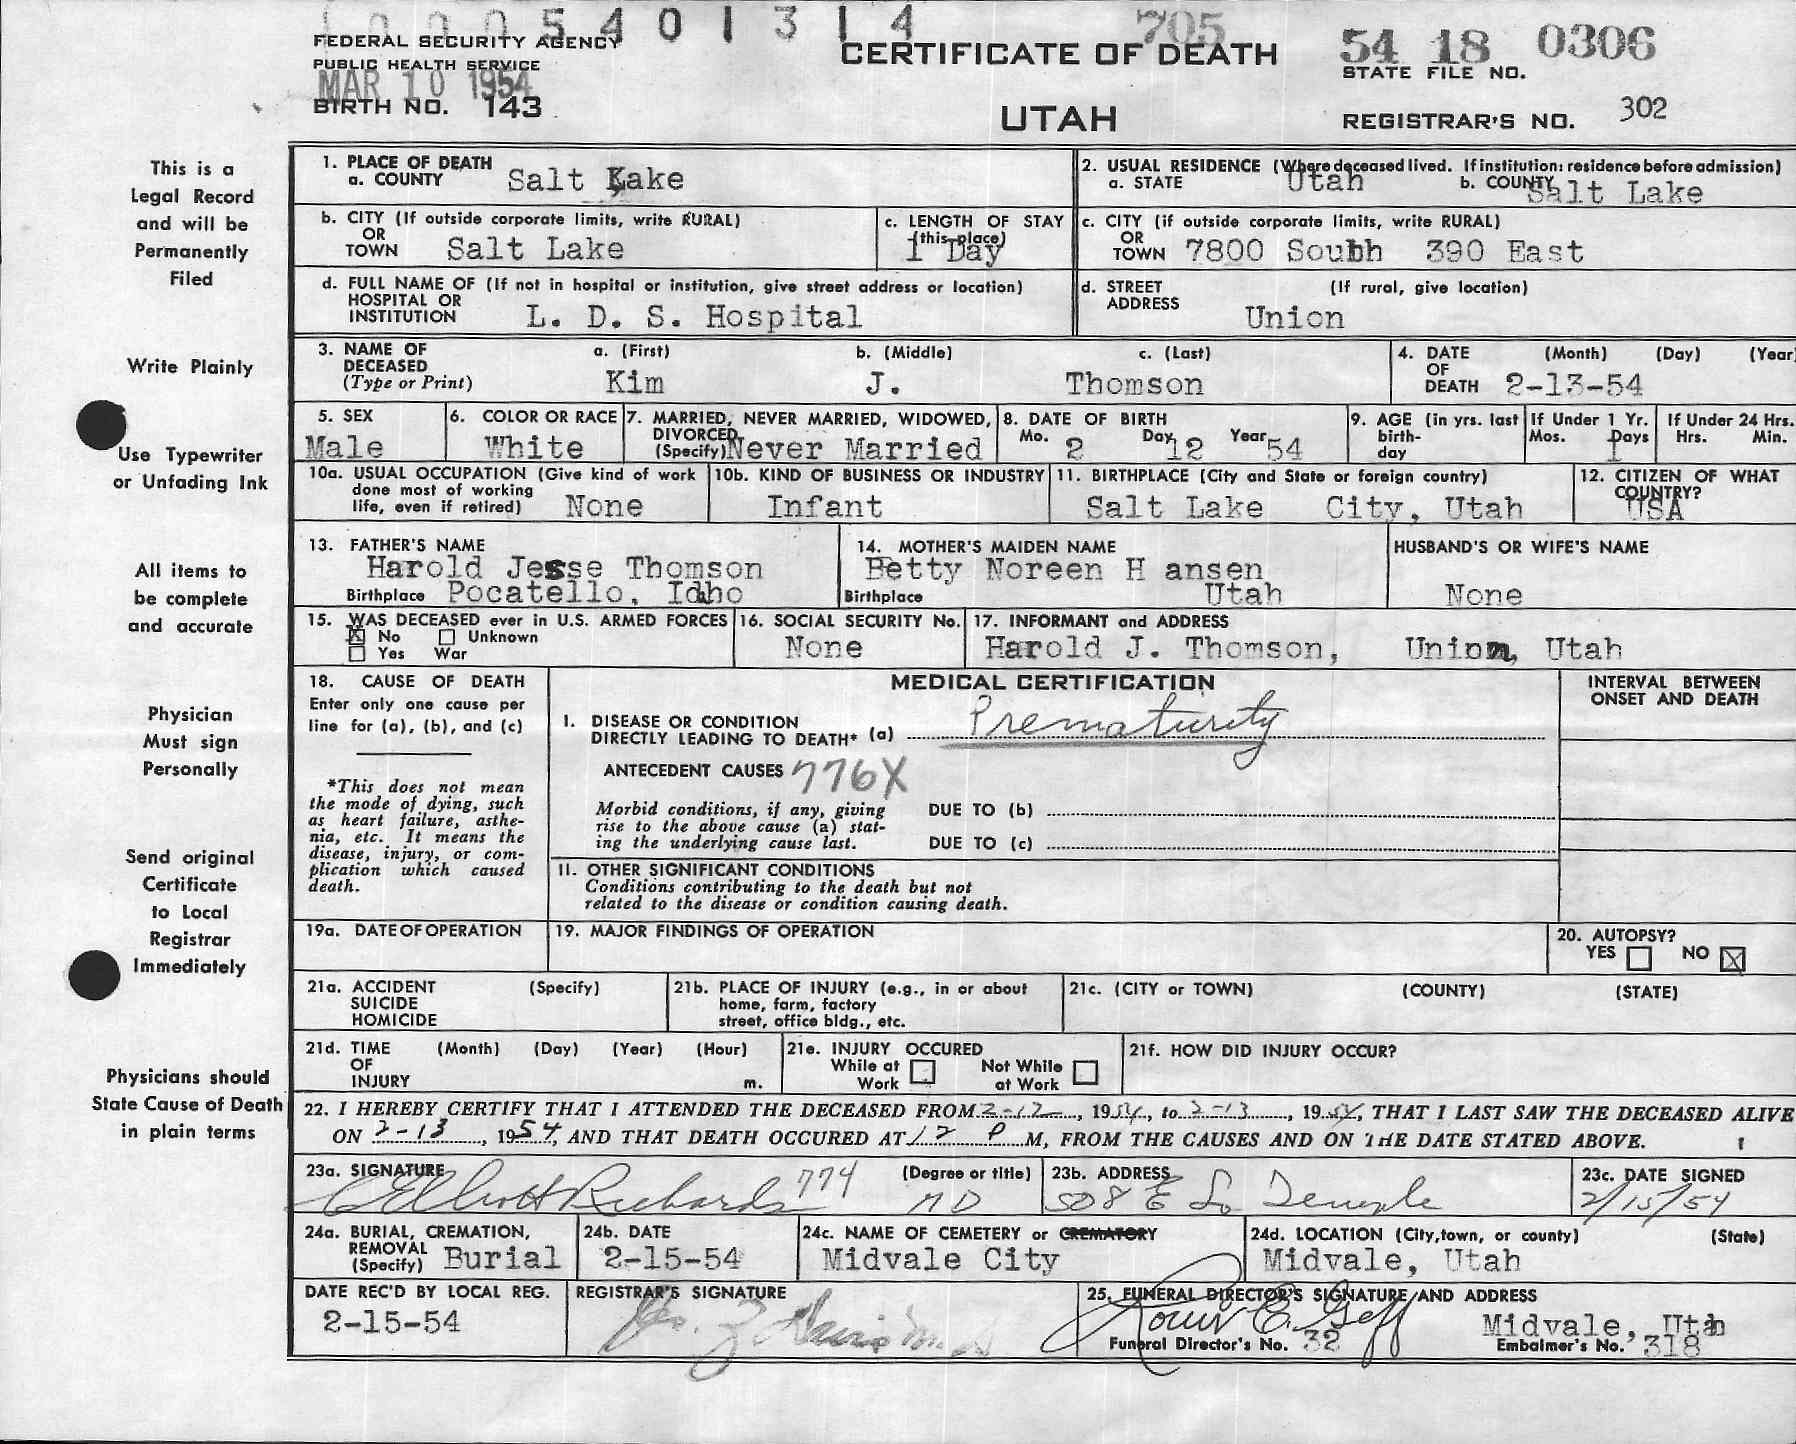 5 4 0 1 3 1 4
FEDERAL SECURITY AGENCY
PUBLIC HEALTH SERVICE
MAR 10 1954
BIRTH NO. 143
705
CERTIFICATE OF DEATH
UTAH
54 18 0306
STATE FILE NO.
REGISTRAR'S NO. 302
This is a
Legal Record
and will be
Permanently
Filed
Write Plainly
Use Typewriter
or Unfading Ink
All items to
be complete
and accurate
Physician
Must sign
Personally
Send original
Certificate
to Local
Registrar
Immediately
Physicians should
State Cause of Death
in plain terms
1. PLACE OF DEATH
a. COUNTY Salt Lake
2. USUAL RESIDENCE (Where deceased lived. If institution: residence before admission)
a. STATE Utah b. COUNTY Salt Lake
b. CITY (If outside corporate limits, write RURAL)
OR
TOWN Salt Lake
c. LENGTH OF STAY
(this place)
1 Day
c. CITY (if outside corporate limits, write RURAL)
OR
TOWN 7800 South 390 East
d. FULL NAME OF (If not in hospital or institution, give street address or location)
HOSPITAL OR
INSTITUTION L. D. S. Hospital
d. STREET (If rural, give location)
ADDRESS
Union
3. NAME OF a. (First) b. (Middle) c. (Last)
DECEASED
(Type or Print) Kim J. Thomson
4. DATE (Month) (Day) (Year)
OF
DEATH 2-13-54
5. SEX
Male
6. COLOR OR RACE
White
7. MARRIED, NEVER MARRIED, WIDOWED,
DIVORCED
(Specify) Never Married
8. DATE OF BIRTH
Mo. 2 Day 12 Year 54
9. AGE (in yrs. last
birth-
day
If Under 1 Yr.
Mos. Days
1
If Under 24 Hrs.
Hrs. Min.
10a. USUAL OCCUPATION (Give kind of work
done most of working
life, even if retired) None
10b. KIND OF BUSINESS OR INDUSTRY
Infant
11. BIRTHPLACE (City and State or foreign country)
Salt Lake City, Utah
12. CITIZEN OF WHAT
COUNTRY?
USA
13. FATHER'S NAME
Harold Jesse Thomson
Birthplace Pocatello, Idho
14. MOTHER'S MAIDEN NAME
Betty Noreen H ansen
Birthplace Utah
HUSBAND'S OR WIFE'S NAME
None
15. WAS DECEASED ever in U.S. ARMED FORCES
X No Unknown
Yes War
16. SOCIAL SECURITY No.
None
17. INFORMANT and ADDRESS
Harold J. Thomson, Union, Utah
18. CAUSE OF DEATH
Enter only one cause per
line for (a), (b), and (c)
*This does not mean
the mode of dying, such
as heart failure, asthe-
nia, etc. It means the
disease, injury, or com-
plication which caused
death.
MEDICAL CERTIFICATION
I. DISEASE OR CONDITION
DIRECTLY LEADING TO DEATH* (a) Prematurity
ANTECEDENT CAUSES 776X
Morbid conditions, if any, giving
rise to the above cause (a) stat-
ing the underlying cause last.
DUE TO (b)
DUE TO (c)
11. OTHER SIGNIFICANT CONDITIONS
Conditions contributing to the death but not
related to the disease or condition causing death.
INTERVAL BETWEEN
ONSET AND DEATH
19a. DATE OF OPERATION
19. MAJOR FINDINGS OF OPERATION
20. AUTOPSY?
YES NO X
21a. ACCIDENT (Specify)
SUICIDE
HOMICIDE
21b. PLACE OF INJURY (e.g., in or about
home, farm, factory
street, office bldg., etc.
21c. (CITY or TOWN) (COUNTY) (STATE)
21d. TIME (Month) (Day) (Year) (Hour)
OF
INJURY m.
21e. INJURY OCCURED
While at Not While
Work at Work
21f. HOW DID INJURY OCCUR?
22. I HEREBY CERTIFY THAT I ATTENDED THE DECEASED FROM 2-12, 1954, to 2-13, 1954, THAT I LAST SAW THE DECEASED ALIVE
ON 2-13, 1954, AND THAT DEATH OCCURED AT 12 P M, FROM THE CAUSES AND ON THE DATE STATED ABOVE.
23a. SIGNATURE (Degree or title)
G Elliott Richards 774 MD
23b. ADDRESS
508 E So Temple
23c. DATE SIGNED
2/15/54
24a. BURIAL, CREMATION,
REMOVAL
(Specify) Burial
24b. DATE
2-15-54
24c. NAME OF CEMETERY or CREMATORY
Midvale City
24d. LOCATION (City, town, or county) (State)
Midvale, Utah
DATE REC'D BY LOCAL REG.
2-15-54
REGISTRAR'S SIGNATURE
25. FUNERAL DIRECTOR'S SIGNATURE AND ADDRESS
Midvale, Utah
Funeral Director's No. 32 Embalmer's No. 318